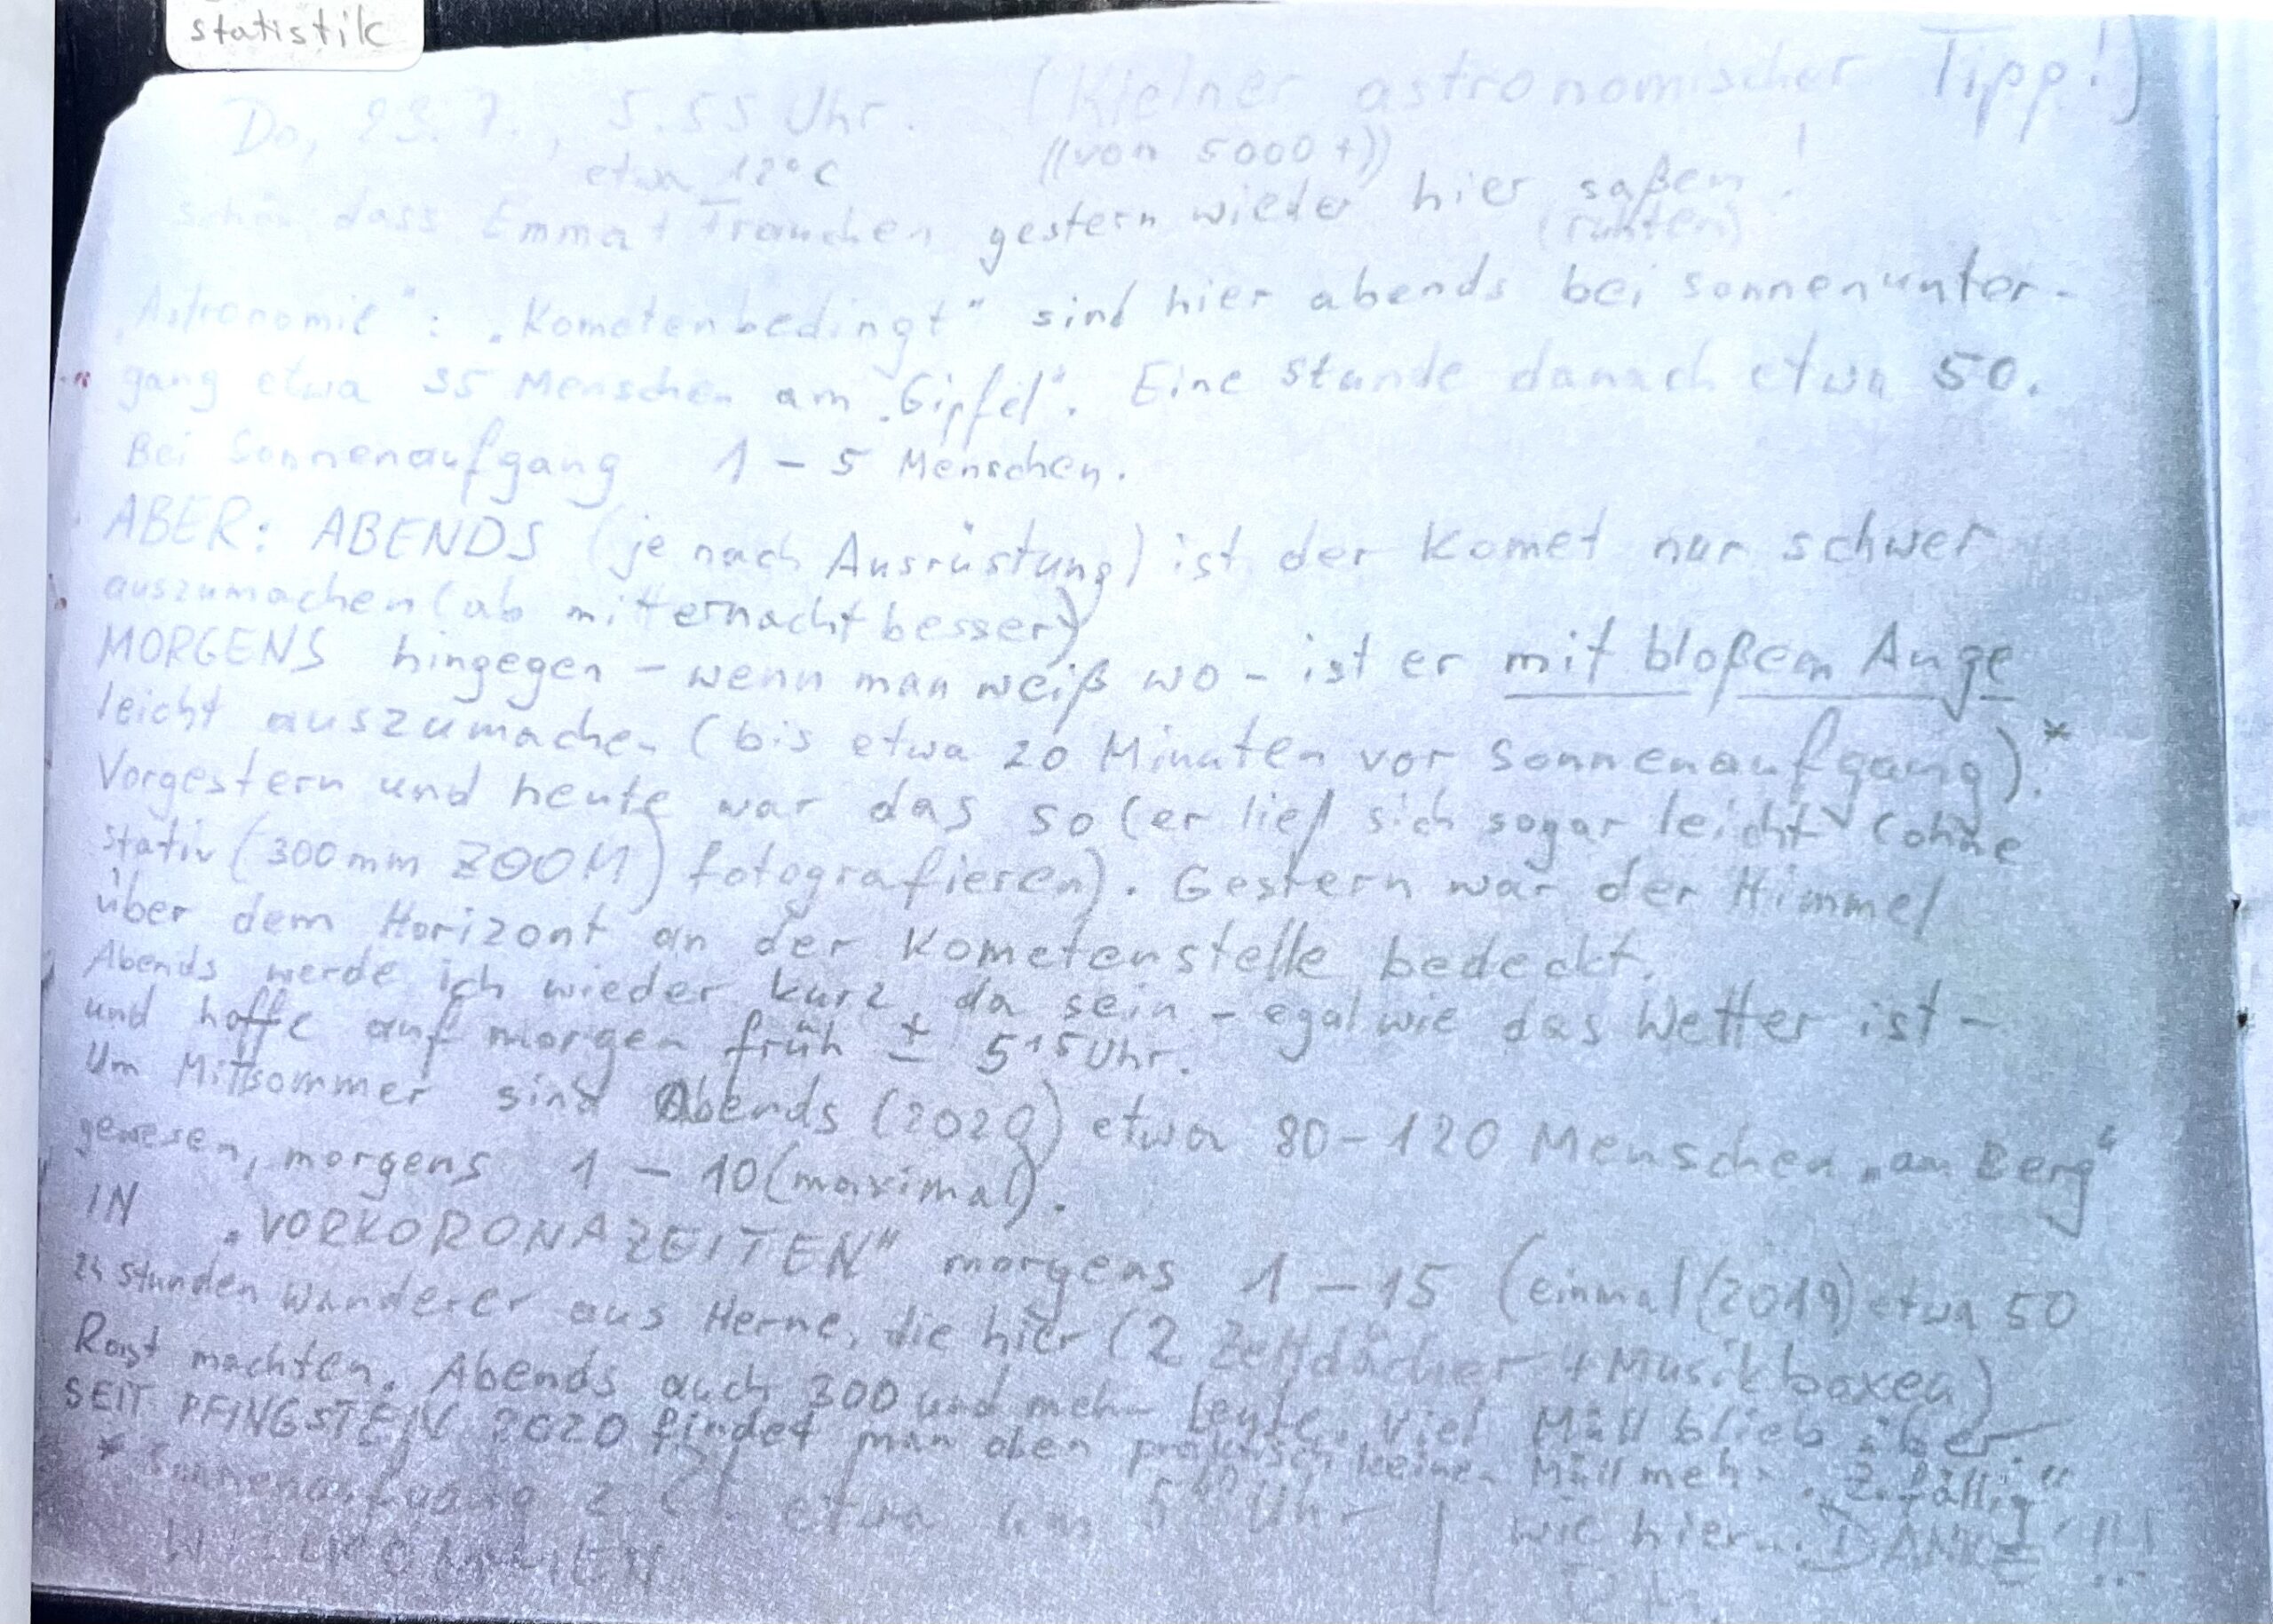 statistik
Do, 23.7., 5.55 Uhr. (Kleiner astronomischer Tipp!)
etwa 12°C ((von 5000+))
schön dass Emma + Frauchen gestern wieder hier saßen!
(ruhten)
"Astronomie": "Kometenbedingt" sind hier abends bei sonnenunter-
gang etwa 35 Menschen am "Gipfel". Eine stunde danach etwa 50.
Bei Sonnenaufgang 1 – 5 Menschen.
ABER: ABENDS (je nach Ausrüstung) ist der Komet nur schwer
auszumachen (ab mitternacht besser)
MORGENS hingegen – wenn man weiß wo – ist er mit bloßem Auge
leicht auszumachen (bis etwa 20 Minuten vor Sonnenaufgang).*
Vorgestern und heute war das so (er ließ sich sogar leicht (ohne
stativ (300mm ZOOM) fotografieren). Gestern war der Himmel
über dem Horizont an der Kometenstelle bedeckt.
Abends werde ich wieder kurz da sein – egal wie das Wetter ist –
und hoffe auf morgen früh ± 5¹⁵ Uhr.
Um Mittsommer sind Abends (2020) etwa 80–120 Menschen "am Berg"
gewesen, morgens 1 – 10 (maximal).
IN "VORKORONAZEITEN" morgens 1 – 15 (einmal (2019) etwa 50
24 stunden wanderer aus Herne, die hier (2 Zeltdächer + Musikboxen)
Rast machten. Abends auch 300 und mehr Leute. Viel Müll blieb über
SEIT PFINGSTEN 2020 findet man oben praktisch keinen Müll mehr. "Zufällig"
* Sonnenaufgang z. Zt. etwa um 5⁴⁰ Uhr wie hier. DANKE!!!